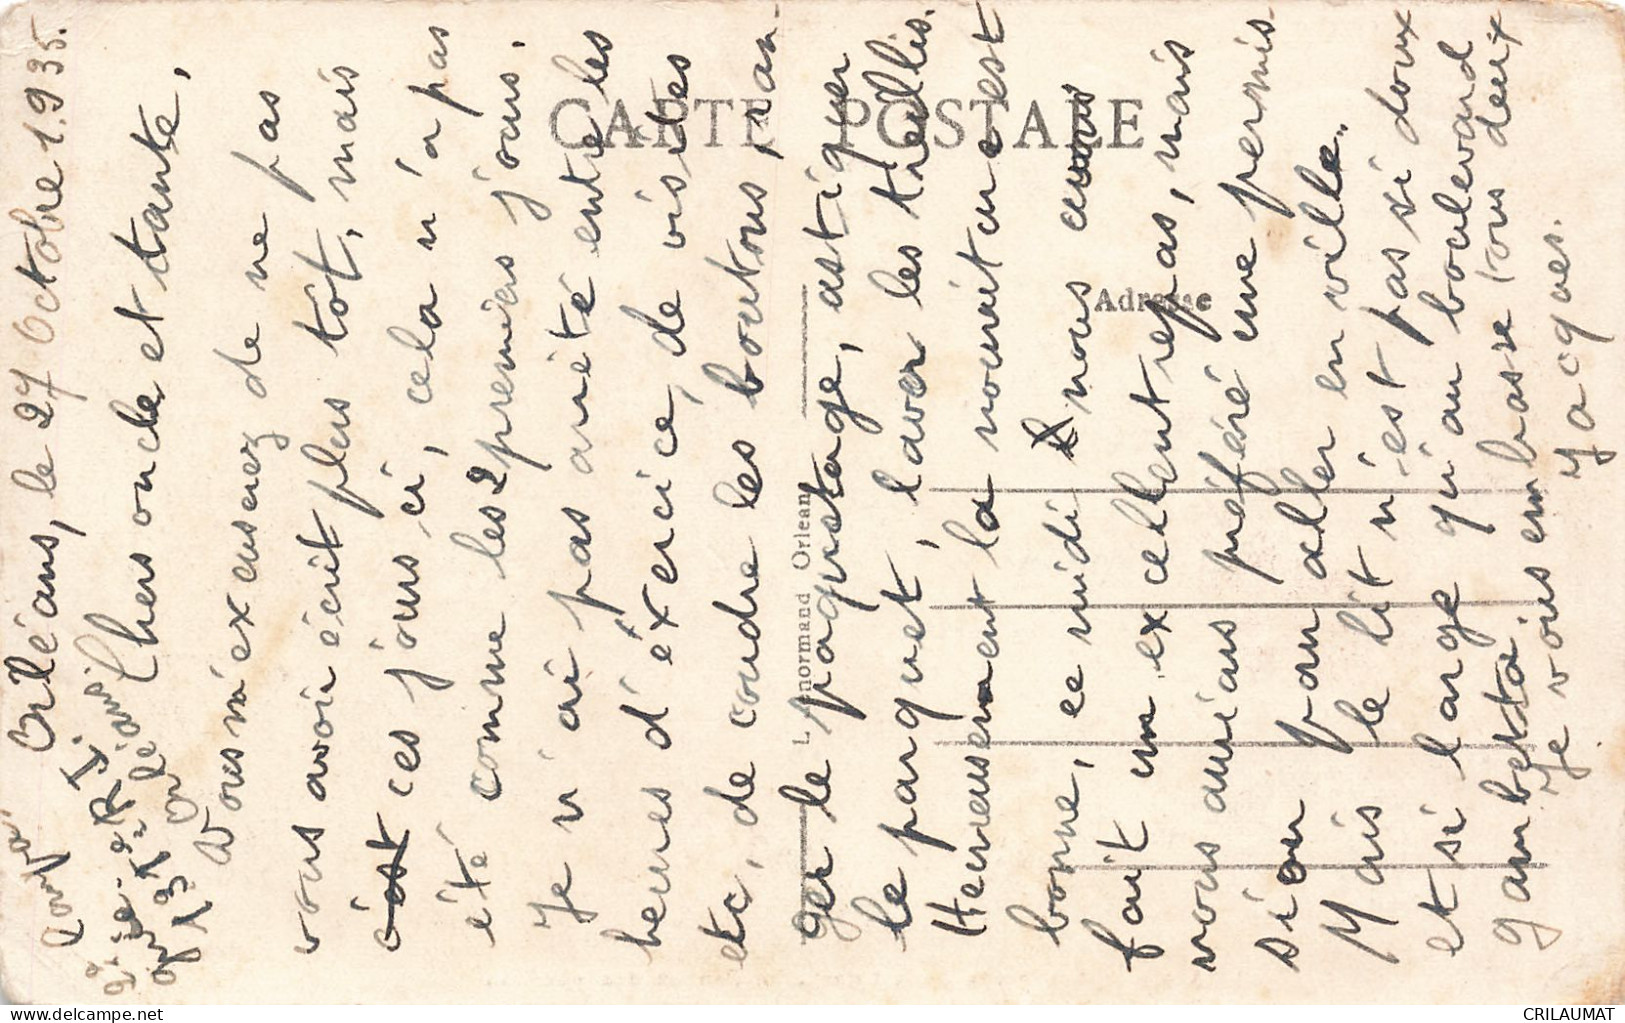 Orléans, le 27 Octobre 1935.
Chers oncle et tante,
Vous m'excuserez de ne pas
vous avoir écrit plus tôt, mais
c'est ces jours ci, cela n'a pas
été comme les 2 premiers jours.
Je n'ai pas arrêté entre les
heures d'éxercice, de visites
etc, de coudre les boutons, ran-
ger le paquetage, astiquer
le parquet, laver les treillis.
Heureusement la nourriture est
bonne, ce midi nous avons
fait un excellent repas, mais
nous aurions préféré une permis-
sion pour aller en ville.
Mais le lit n'est pas si doux
et si large qu'au boulevard
gambetta.
Je vous embrasse tous deux
Jacques.
131e R.I.
Orléans
CARTE POSTALE
Adresse
Lenormand Orléan
CRILAUMAT
www.delcampe.net